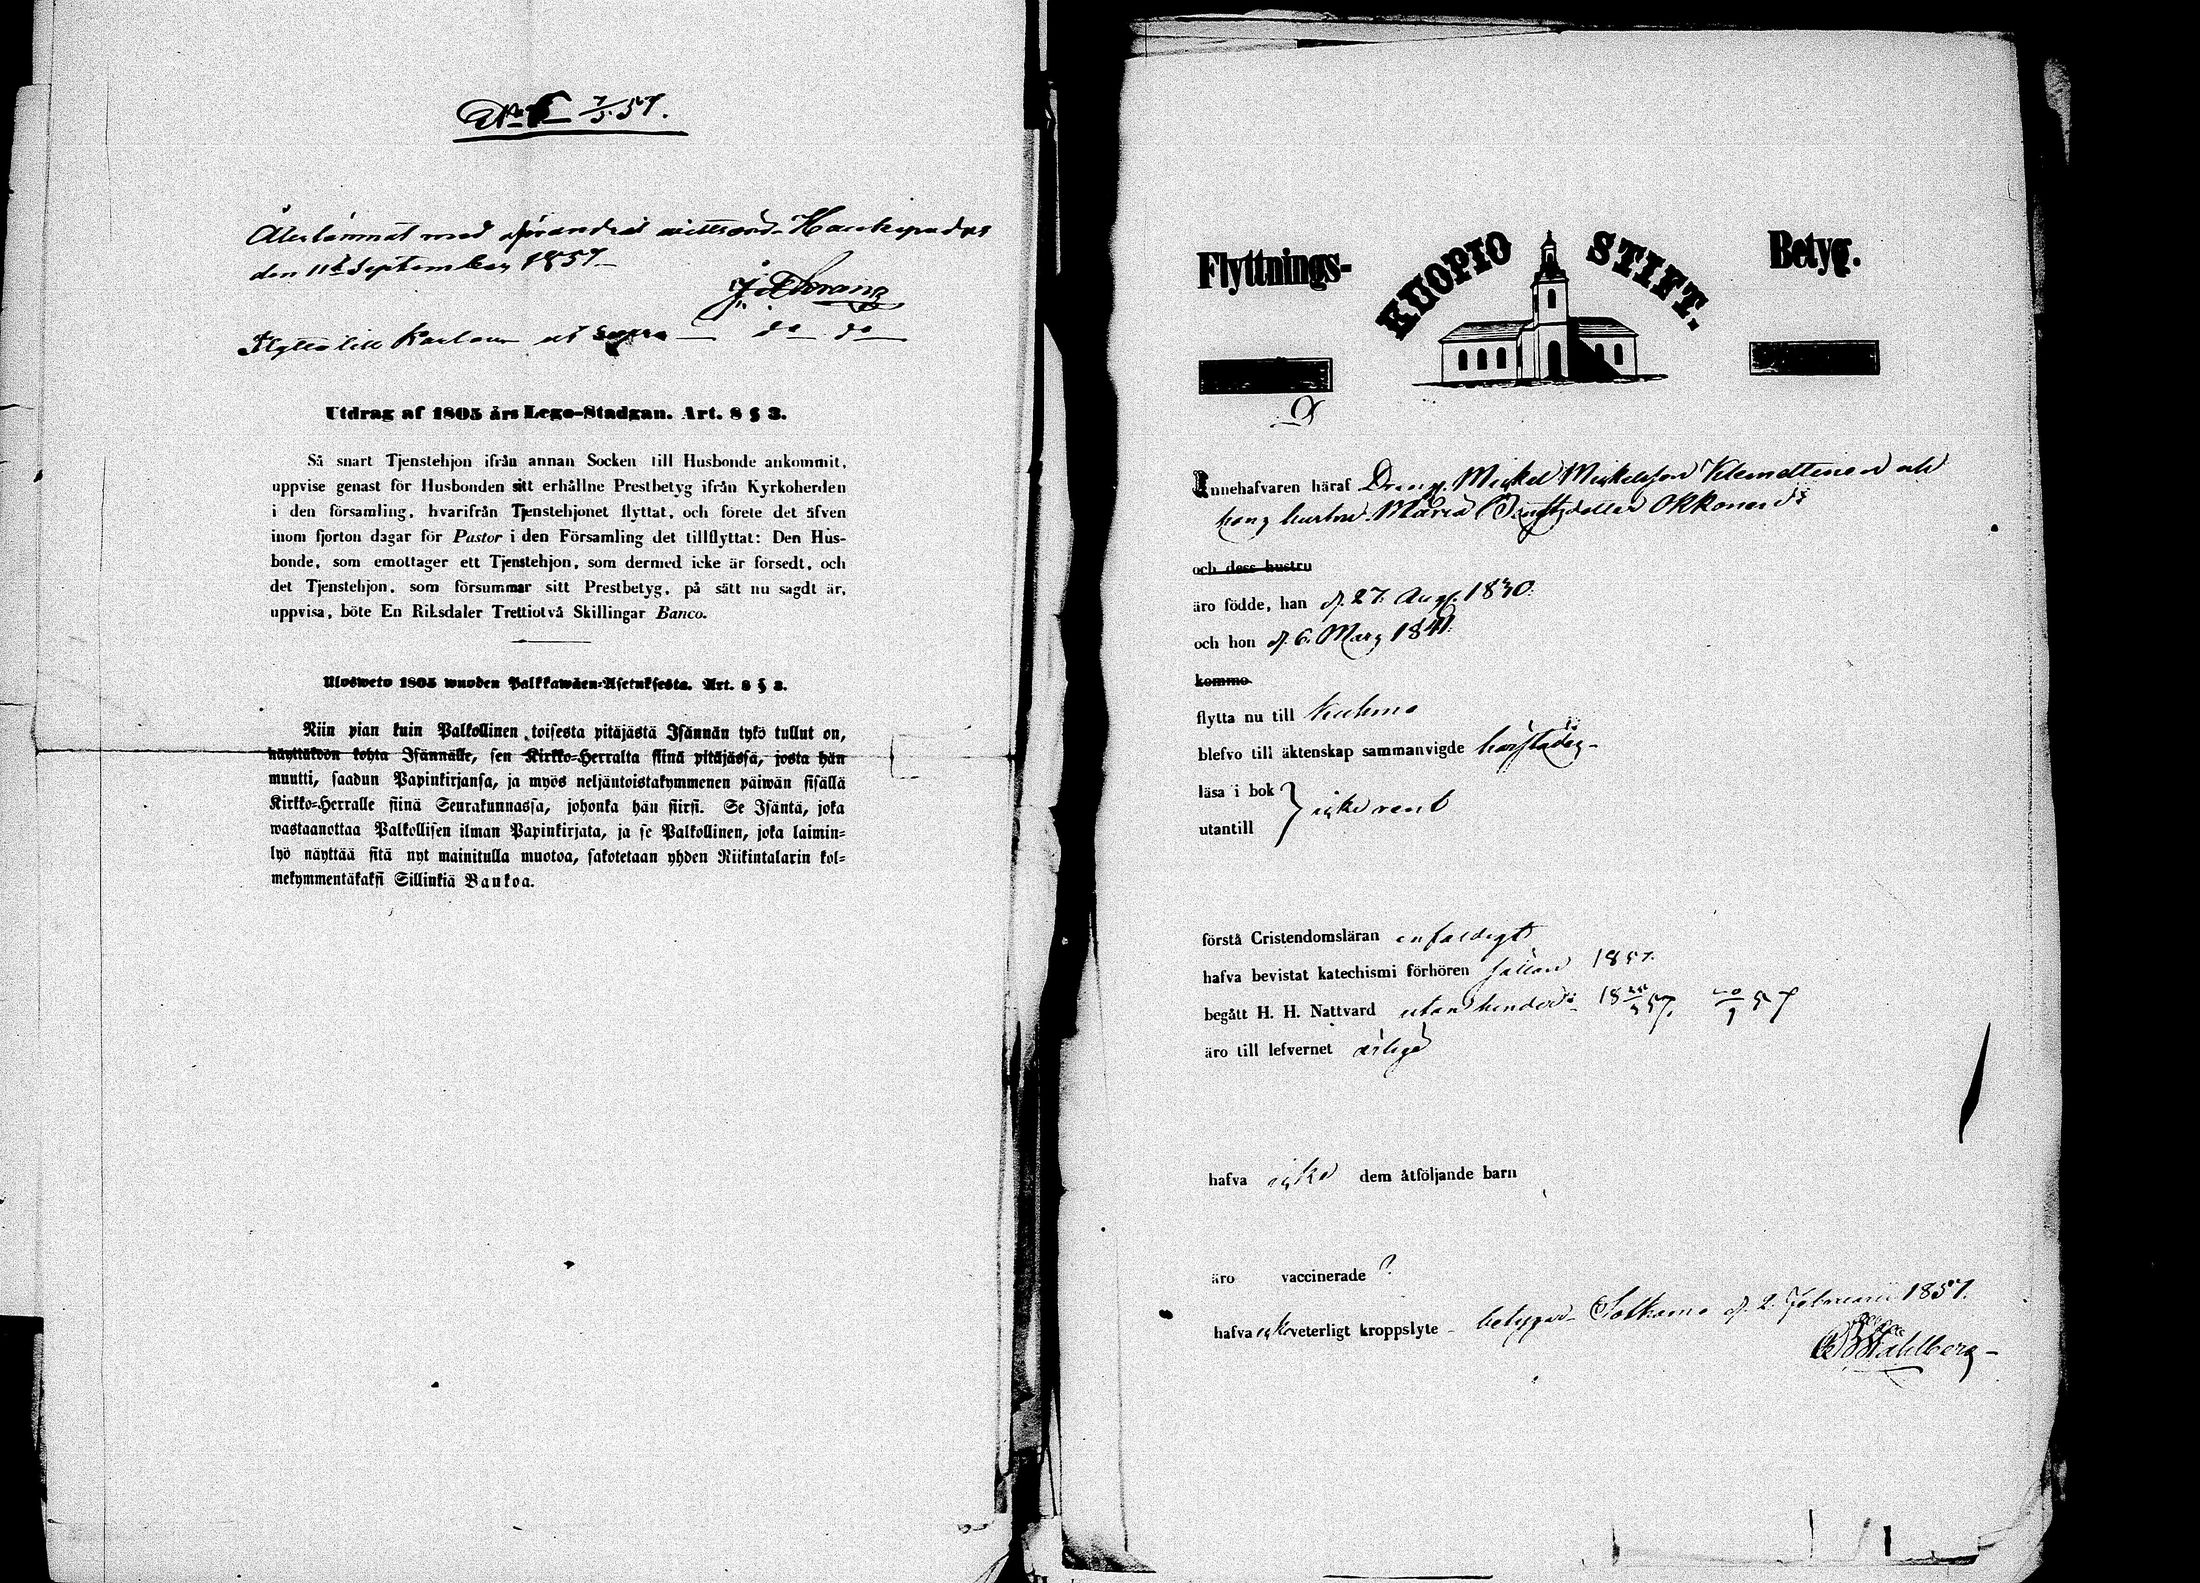 No 6 7/3.57.
Återlämnat med oförändrat vittsord. Haukipudas
den 11 September 1857.
Flyttā till Karlaun ut supra — do do
Utdrag af 1805 års Lego-Stadgan. Art. 8 § 3.
Så snart Tjenstehjon ifrån annan Socken till Husbonde ankommit,
uppvise genast för Husbonden sitt erhållne Prestbetyg ifrån Kyrkoherden
i den församling, hvarifrån Tjenstehjonet flyttat, och förete det äfven
inom fjorton dagar för Pastor i den Församling det tillflyttat: Den Hus-
bonde, som emottager ett Tjenstehjon, som dermed icke är försedt, och
det Tjenstehjon, som försummar sitt Prestbetyg, på sätt nu sagdt är,
uppvisa, böte En Riksdaler Trettiotvå Skillingar Banco.
Ulosweto 1805 wuoden Palkkawäen-Asetuksesta. Art. 8 § 3.
Niin pian kuin Palkollinen toisesta pitäjästä Isännän tykö tullut on,
näyttäköön kohta Isännälle, sen Kirkko-Herralta siinä pitäjässä, josta hän
muutti, saadun Papinkirjansa, ja myös neljäntoistakymmenen päiwän sisällä
Kirkko-Herralle siinä Seurakunnassa, johonka hän siirsi. Se Isäntä, joka
wastaanottaa Palkollisen ilman Papinkirjata, ja se Palkollinen, joka laimin-
lyö näyttää sitä nyt mainitulla muotoa, sakotetaan yhden Riikintalarin kol-
mekymmentäkaksi Sillinkiä Bankoa.
Flyttnings- KUOPIO STIFT. Betyg.
Innehafvaren häraf Dreng. Mickel Mickelsson Klemettinen och
hans hustru Maria Bengtsdotter Okkonen
och dess hustru
äro födde, han d. 27. Aug. 1830.
och hon d. 6. Mars 1841.
komme
flytta nu till Kuhmo
blefvo till äktenskap sammanvigde härstädes
läsa i bok
utantill } icke rent
förstå Cristendomsläran enfaldigt
hafva bevistat katechismi förhören sällan 1857.
begått H. H. Nattvard utan hinder 57. 57
äro till lefvernet ärliga
hafva icke dem åtföljande barn
äro vaccinerade ?
hafva icke veterligt kroppslyte – betygar Sotkamo d. 2. Februarii 1857.
Stahlberg